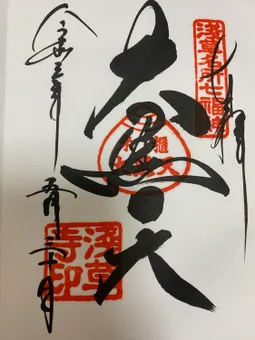 奉拝
浅草名所七福神
大黒天
令和三年
五月三十日
浅草寺印